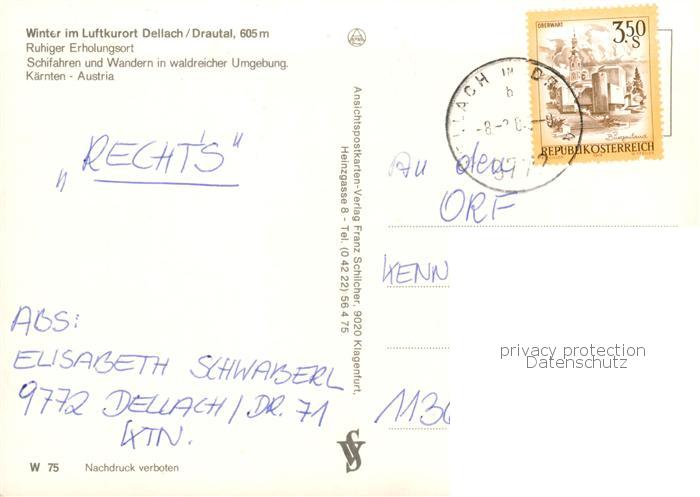 Winter im Luftkurort Dellach/Drautal, 605 m
Ruhiger Erholungsort
Schifahren und Wandern in waldreicher Umgebung.
Kärnten - Austria
„RECHTS"
ABS:
ELISABETH SCHWABERL
9772 DELLACH/DR. 71
KTN.
W 75 Nachdruck verboten
Ansichtspostkarten-Verlag Franz Schilcher, 9020 Klagenfurt,
Heinzgasse 8 - Tel. (0 42 22) 56 4 75
OBERWART
3.50
S
Burgenland
REPUBLIK ÖSTERREICH
DELLACH IM DR
b
9772
An den
ORF
KENN
113
privacy protection
Datenschutz